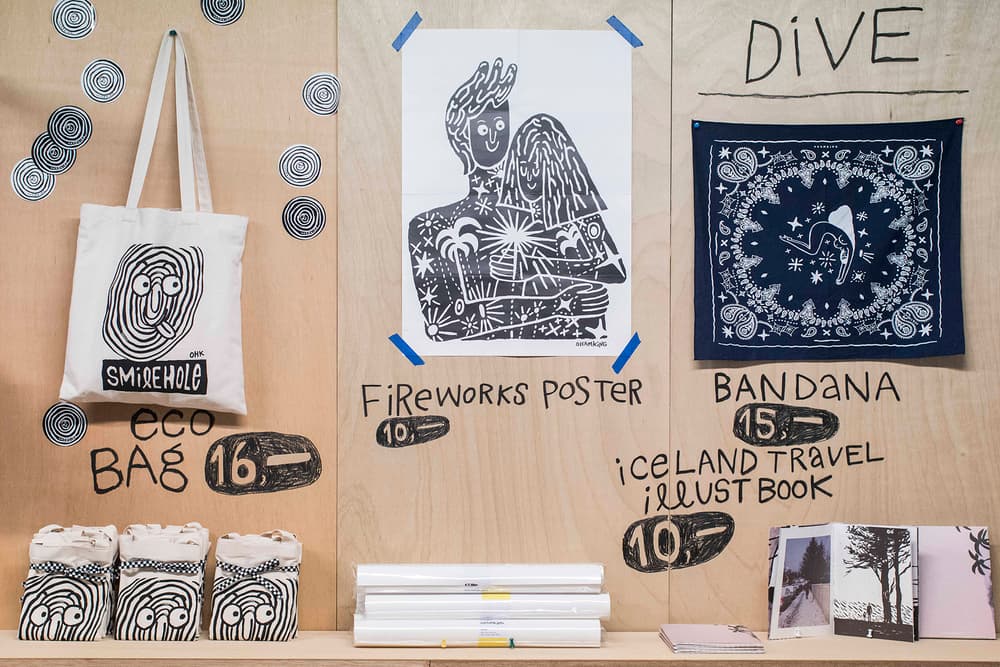 DiVE
OHK
SMiLEHOLE
OHAMKING
eco
BAg
16,—
FiREWORKS POSTER
10,—
BANDANA
15,—
iceLAND TRAVEL
iLLUST BOOK
10,—